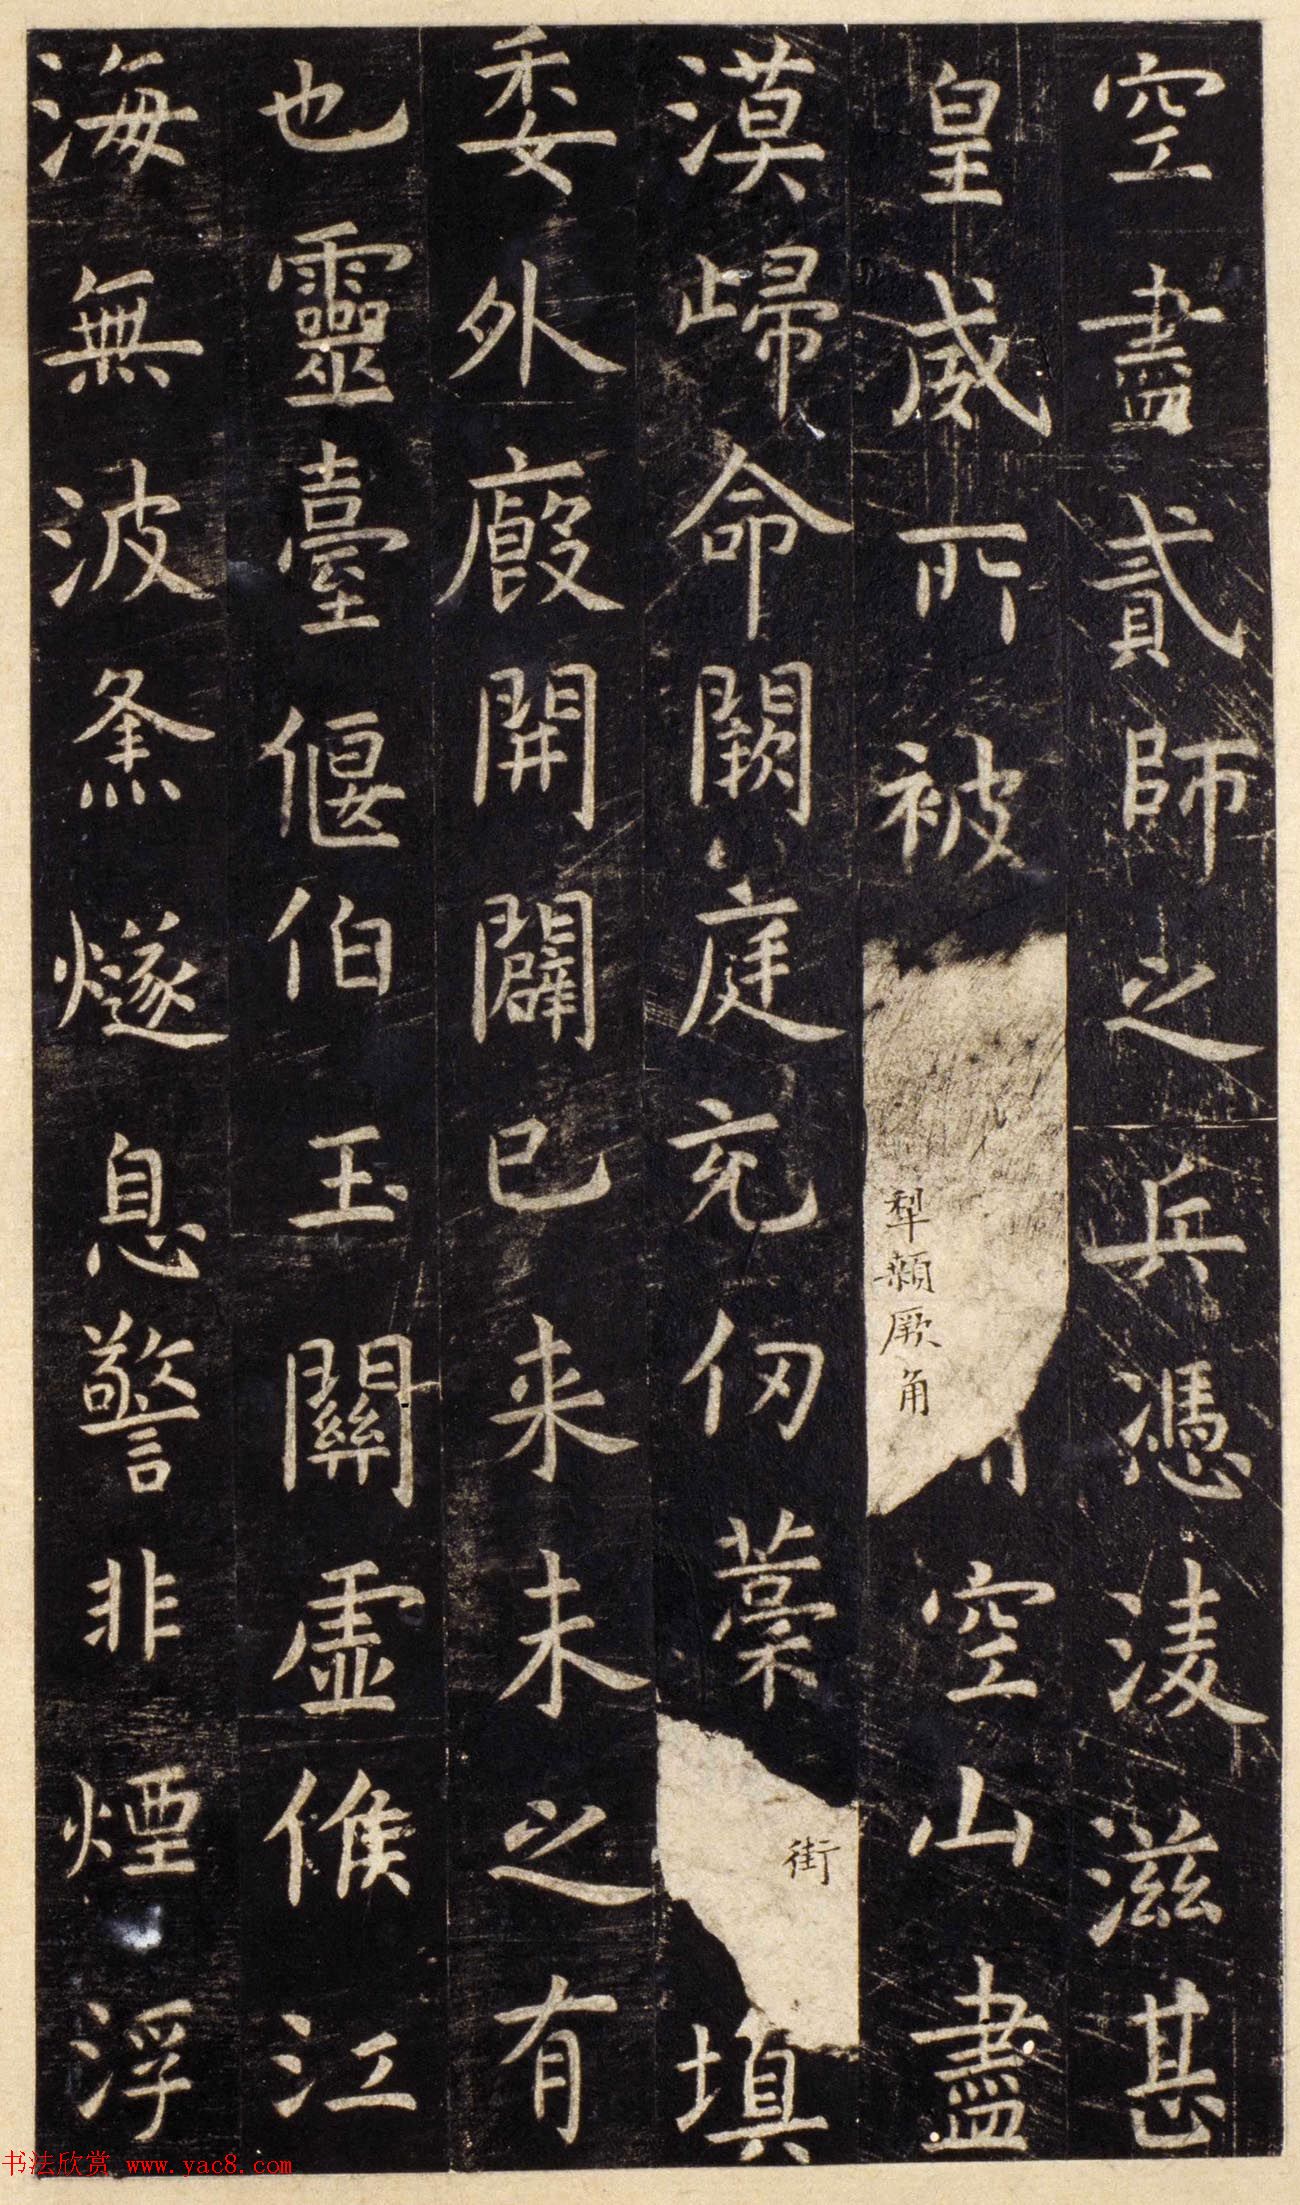 空盡貳師之兵憑淩滋甚
皇威所被犁顙厥角空山盡
漠歸命闕庭充仞藁街填
委外廄開闢已来未之有
也靈臺偃伯玉關虛候江
海無波烽燧息警非煙浮
书法欣赏 www.yac8.com